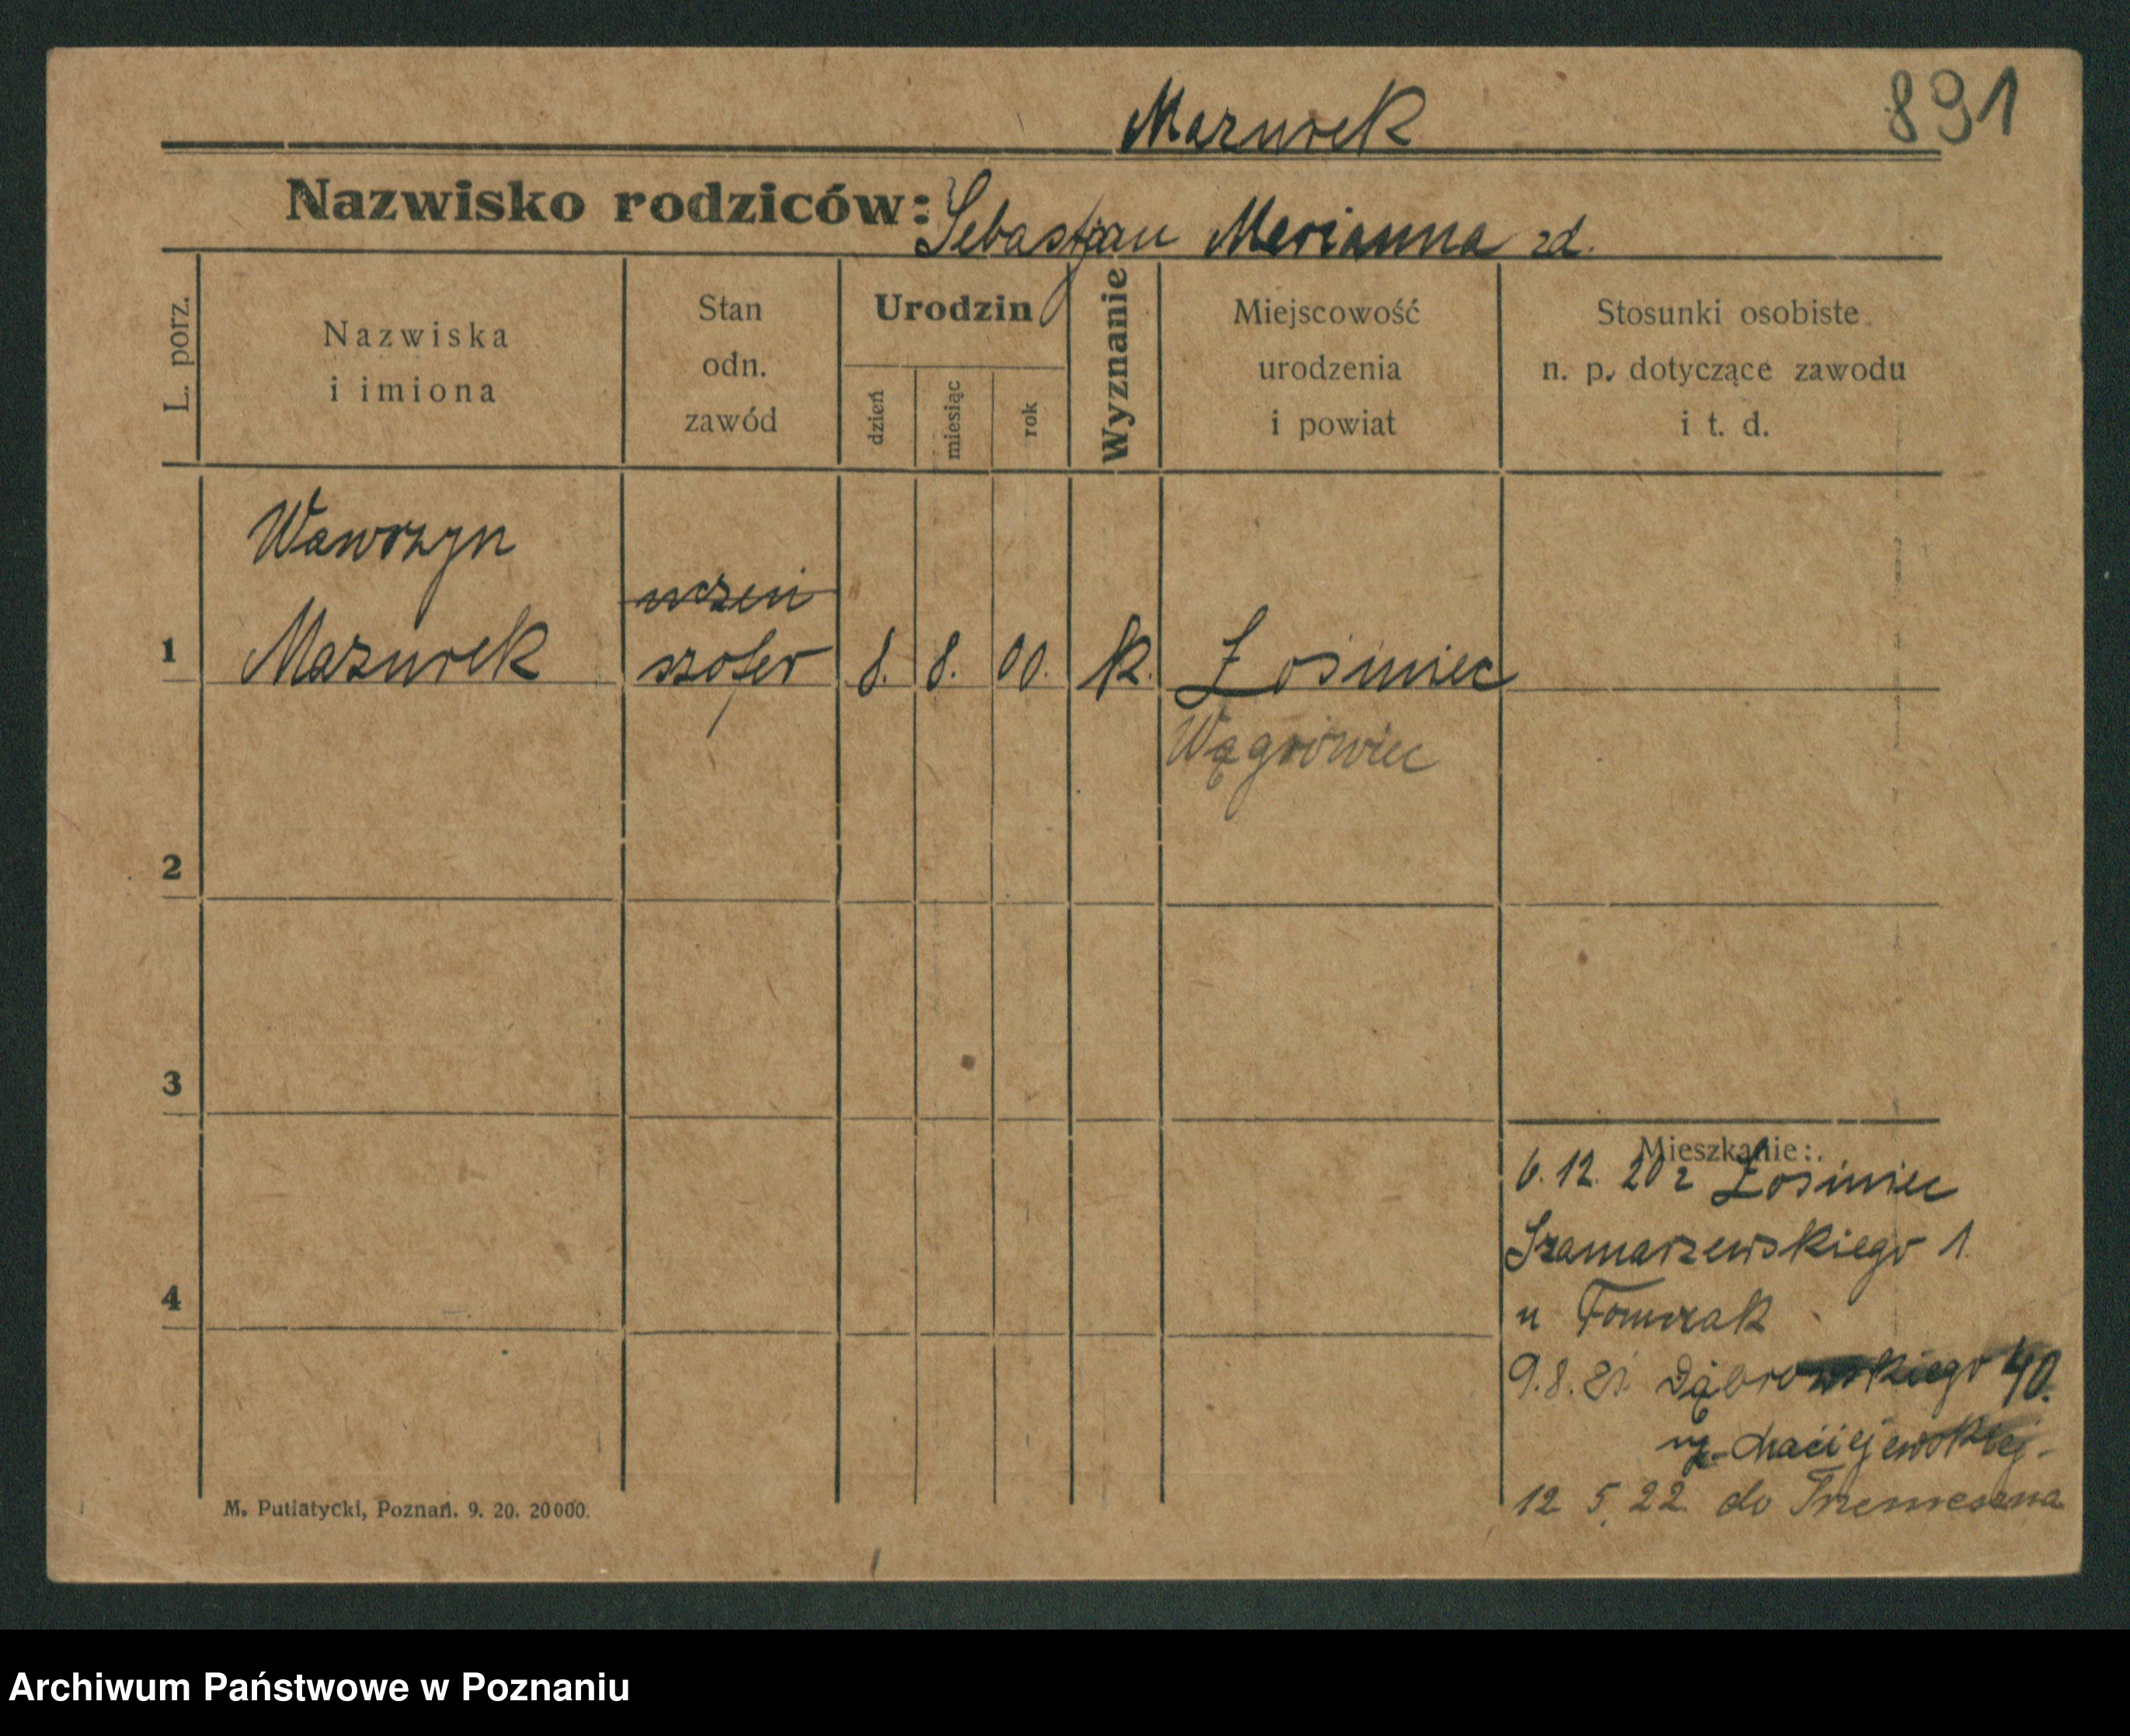 Mazurek 891
Nazwisko rodziców: Sebastjan Marianna zd.
L. porz.
Nazwiska
i imiona
Stan
odn.
zawód
Urodzin
dzień
miesiąc
rok
Wyznanie
Miejscowość
urodzenia
i powiat
Stosunki osobiste
n. p. dotyczące zawodu
i t. d.
Wawrzyn
uczeń
1 Mazurek szofer 8. 8. 00. k. Łosiniec
Wągrówiec
2
3
4
Mieszkanie:
6. 12. 20 z Łosiniec
Szamarzewskiego 1.
u Tomczak
9. 8. 21. Dąbrowskiego 40.
Maciejewskiej
12 5. 22. do Trzemeszna
M. Putiatycki, Poznań. 9. 20. 20000.
Archiwum Państwowe w Poznaniu